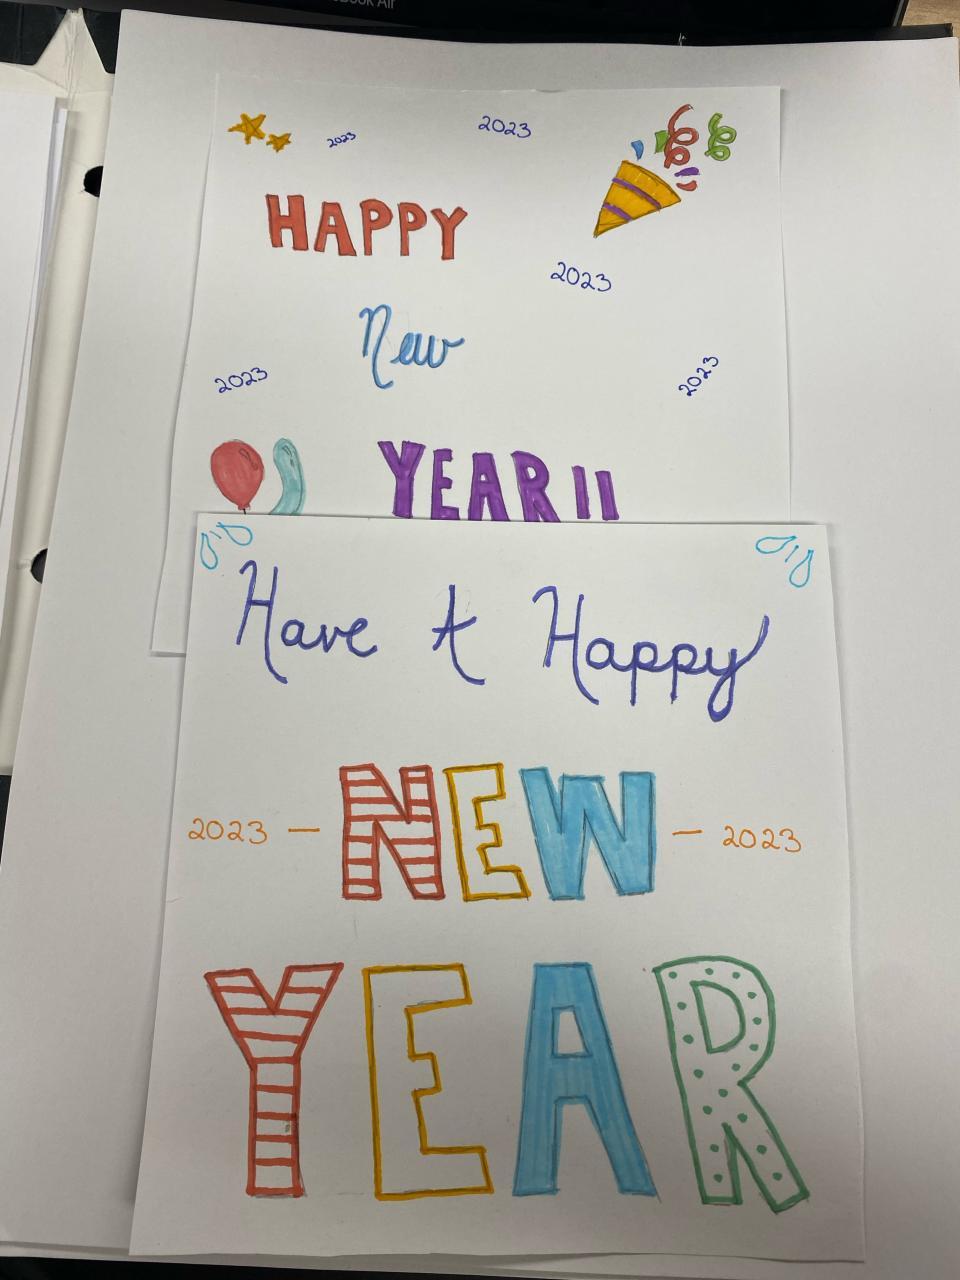 Book Air
2023
2023
HAPPY
2023
New
2023
2023
YEAR !!
Have A Happy
2023 — NEW — 2023
YEAR